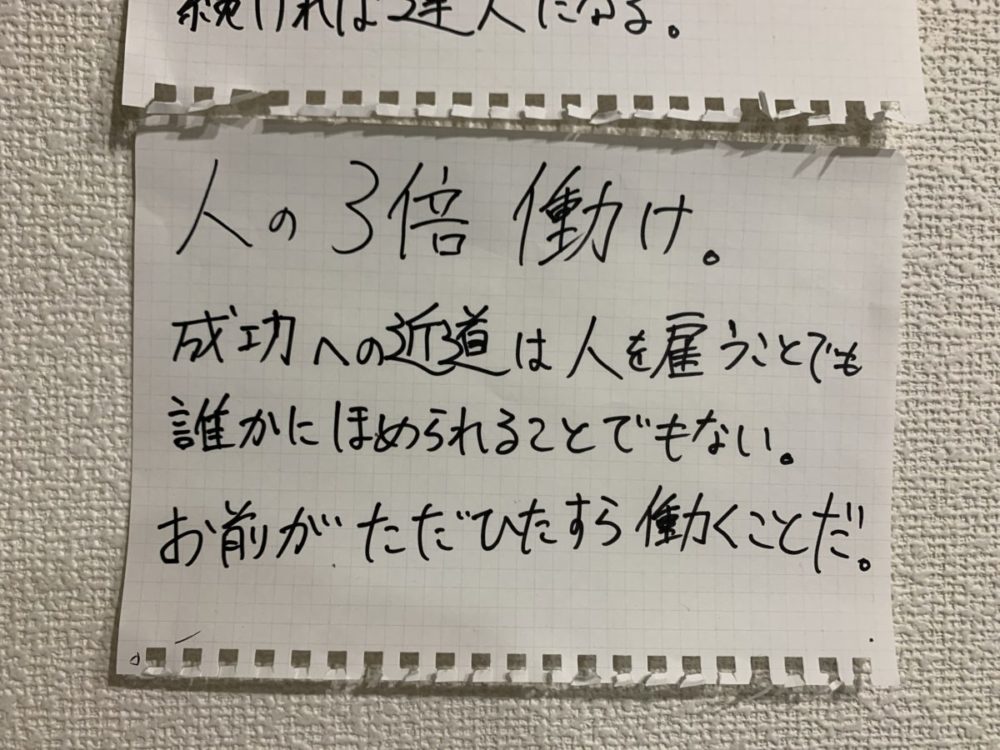 続ければ達人になる。
人の3倍 働け。
成功への近道は人を雇うことでも
誰かにほめられることでもない。
お前がただひたすら働くことだ。